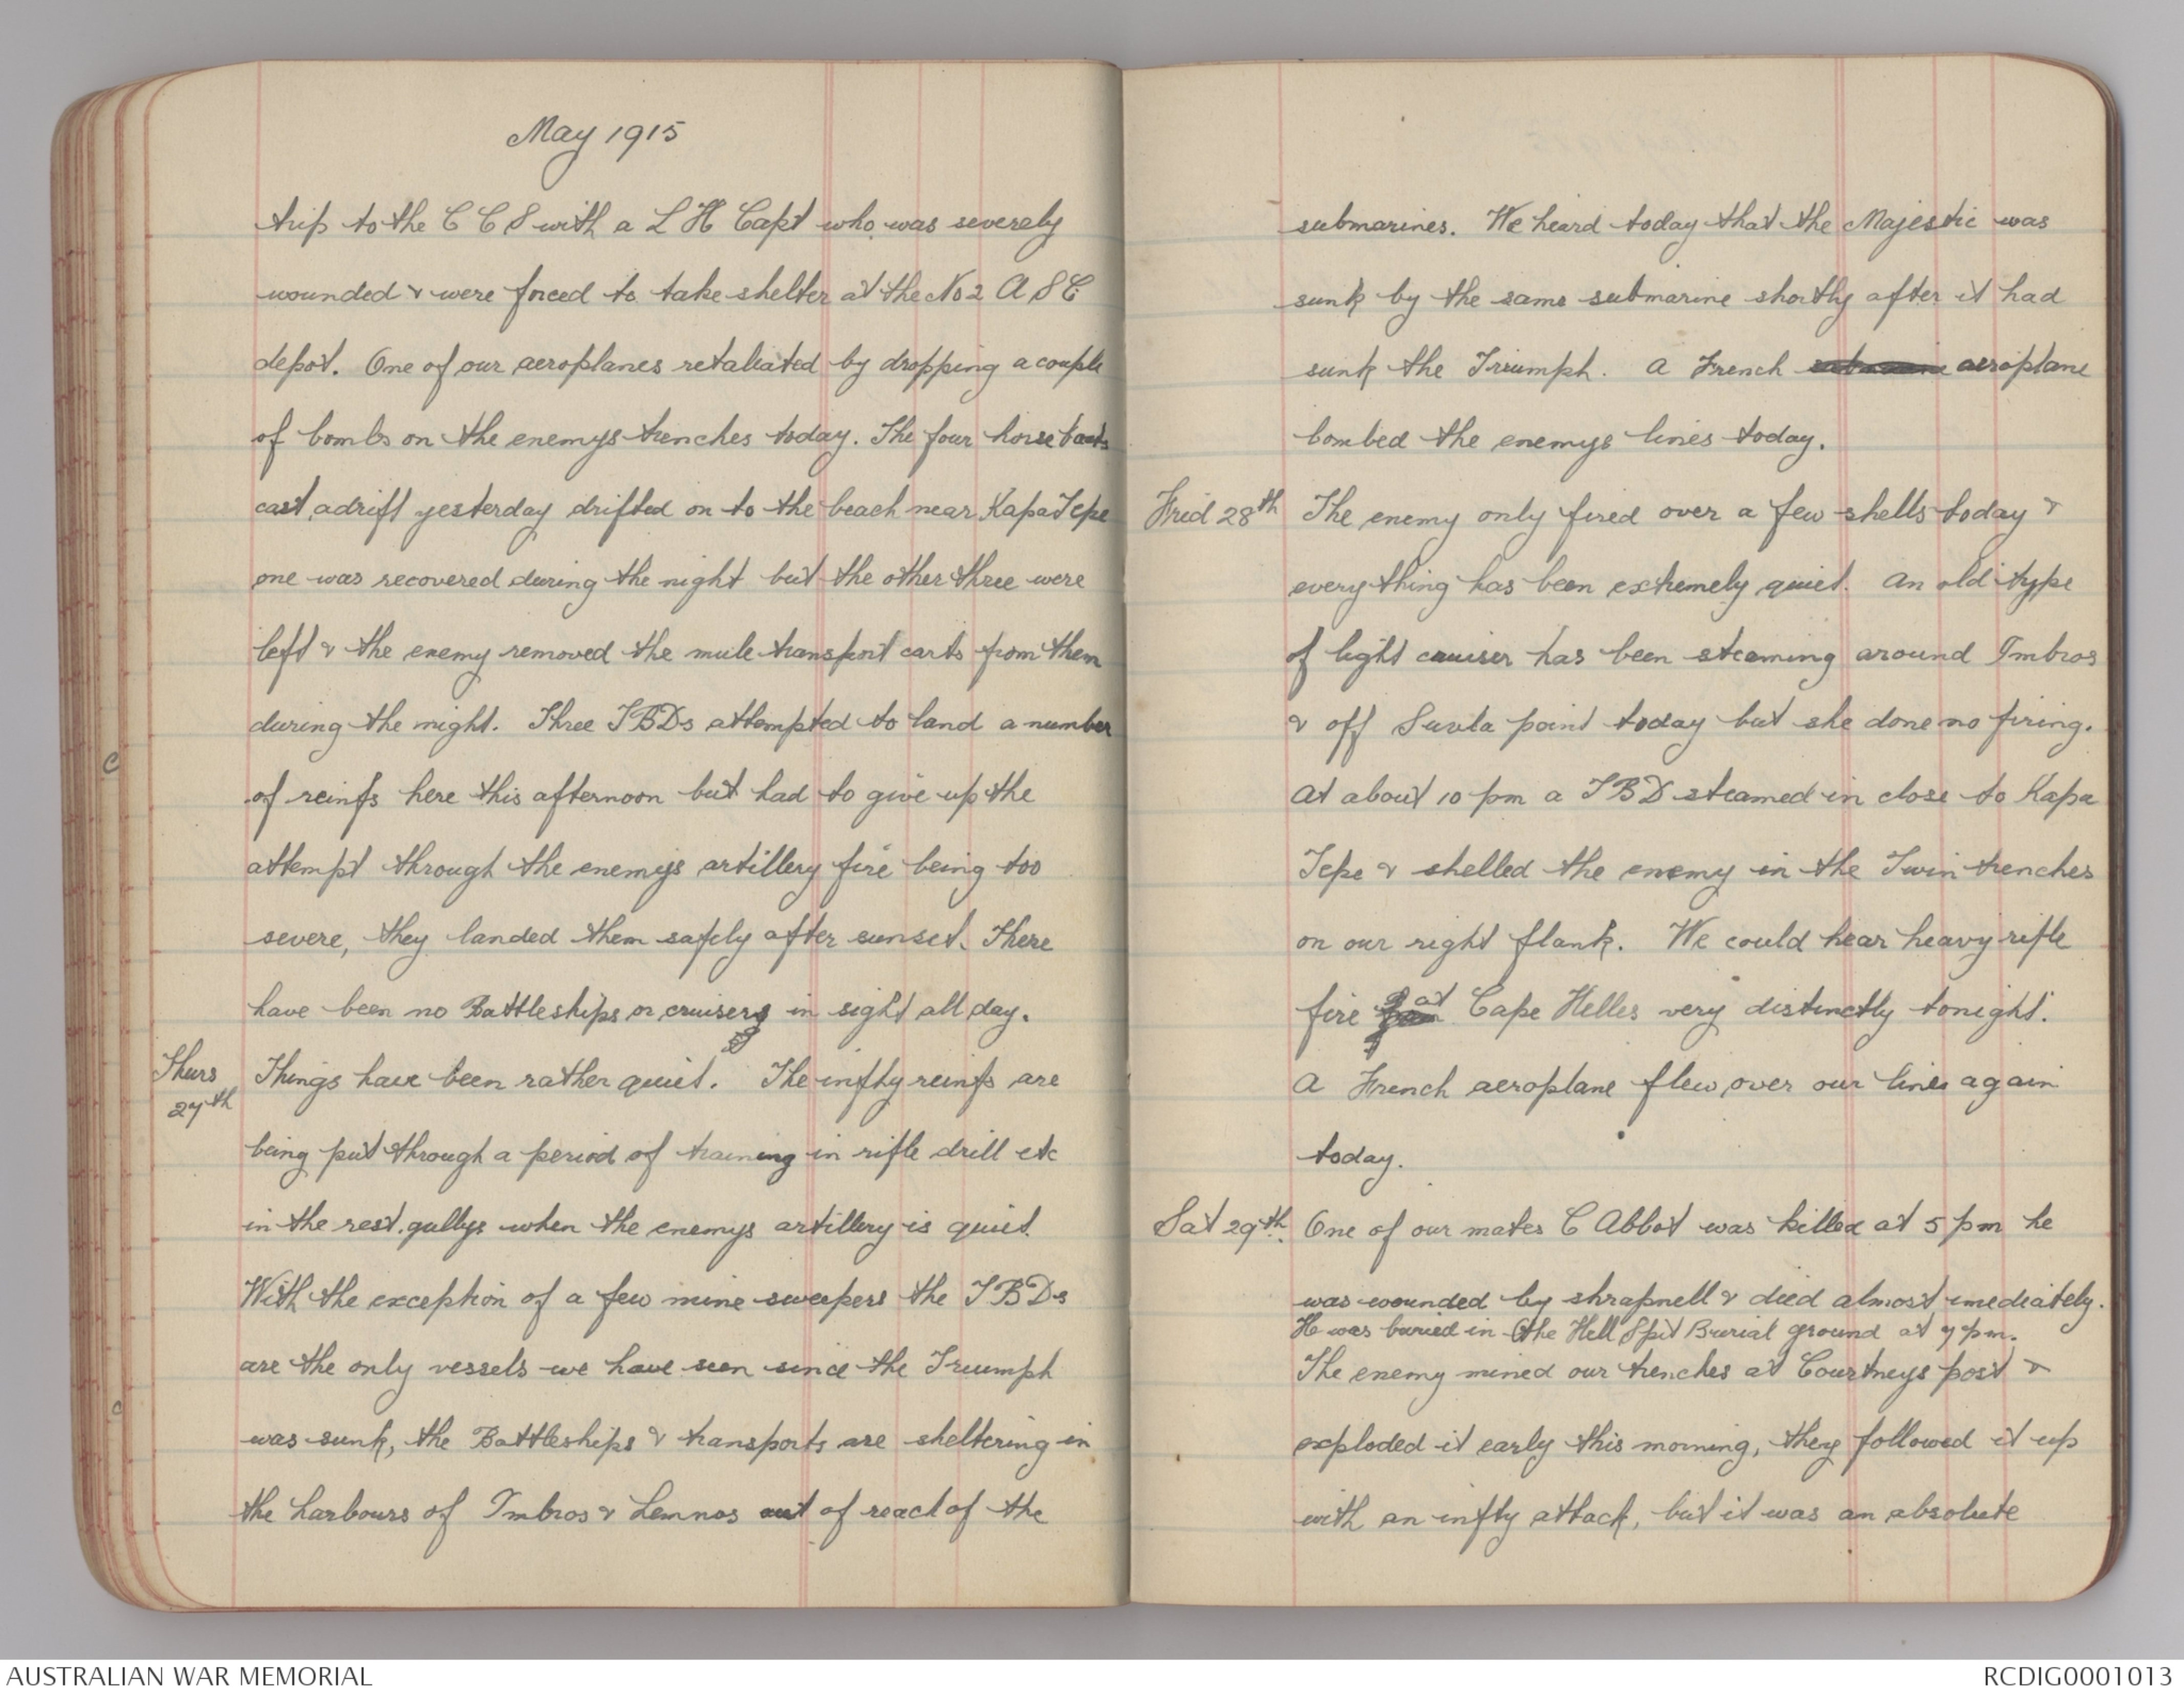 May 1915
trip to the C C S with a L H Capt who was severely
wounded & were forced to take shelter at the No 2 A S C
depot. One of our aeroplanes retaliated by dropping a couple
of bombs on the enemys trenches today. The four horse boats
cast adrift yesterday drifted on to the beach near Kapa Tepe
one was recovered during the night but the other three were
left & the enemy removed the mule transport carts from them
during the night. Three TBDs attempted to land a number
of reinfs here this afternoon but had to give up the
attempt through the enemys artillery fire being too
severe, they landed them safely after sunset. There
have been no Battleships or cruisers in sight all day.
Thurs
27th
Things have been rather quiet. The infty reinfs are
being put through a period of training in rifle drill etc
in the rest gullys when the enemys artillery is quiet.
With the exception of a few mine sweepers the TBDs
are the only vessels we have seen since the Triumph
was sunk, the Battleships & transports are sheltering in
the harbours of Imbros & Lemnos out of reach of the
submarines. We heard today that the Majestic was
sunk by the same submarine shortly after it had
sunk the Triumph. A French submarine aeroplane
bombed the enemys lines today.
Frid 28th The enemy only fired over a few shells today &
everything has been extremely quiet. An old type
of light cruiser has been steaming around Imbros
& off Suvla point today but she done no firing.
At about 10 pm a TBD steamed in close to Kapa
Tepe & shelled the enemy in the Twin trenches
on our right flank. We could hear heavy rifle
fire at Cape Helles very distinctly tonight.
A French aeroplane flew over our lines again
today.
Sat 29th. One of our mates C Abbot was killed at 5 pm he
was wounded by shrapnell & died almost imediately.
He was buried in the Hell Spit Burial ground at 7 pm.
The enemy mined our trenches at Courtneys post &
exploded it early this morning, they followed it up
with an infty attack, but it was an absolute
AUSTRALIAN WAR MEMORIAL
RCDIG0001013